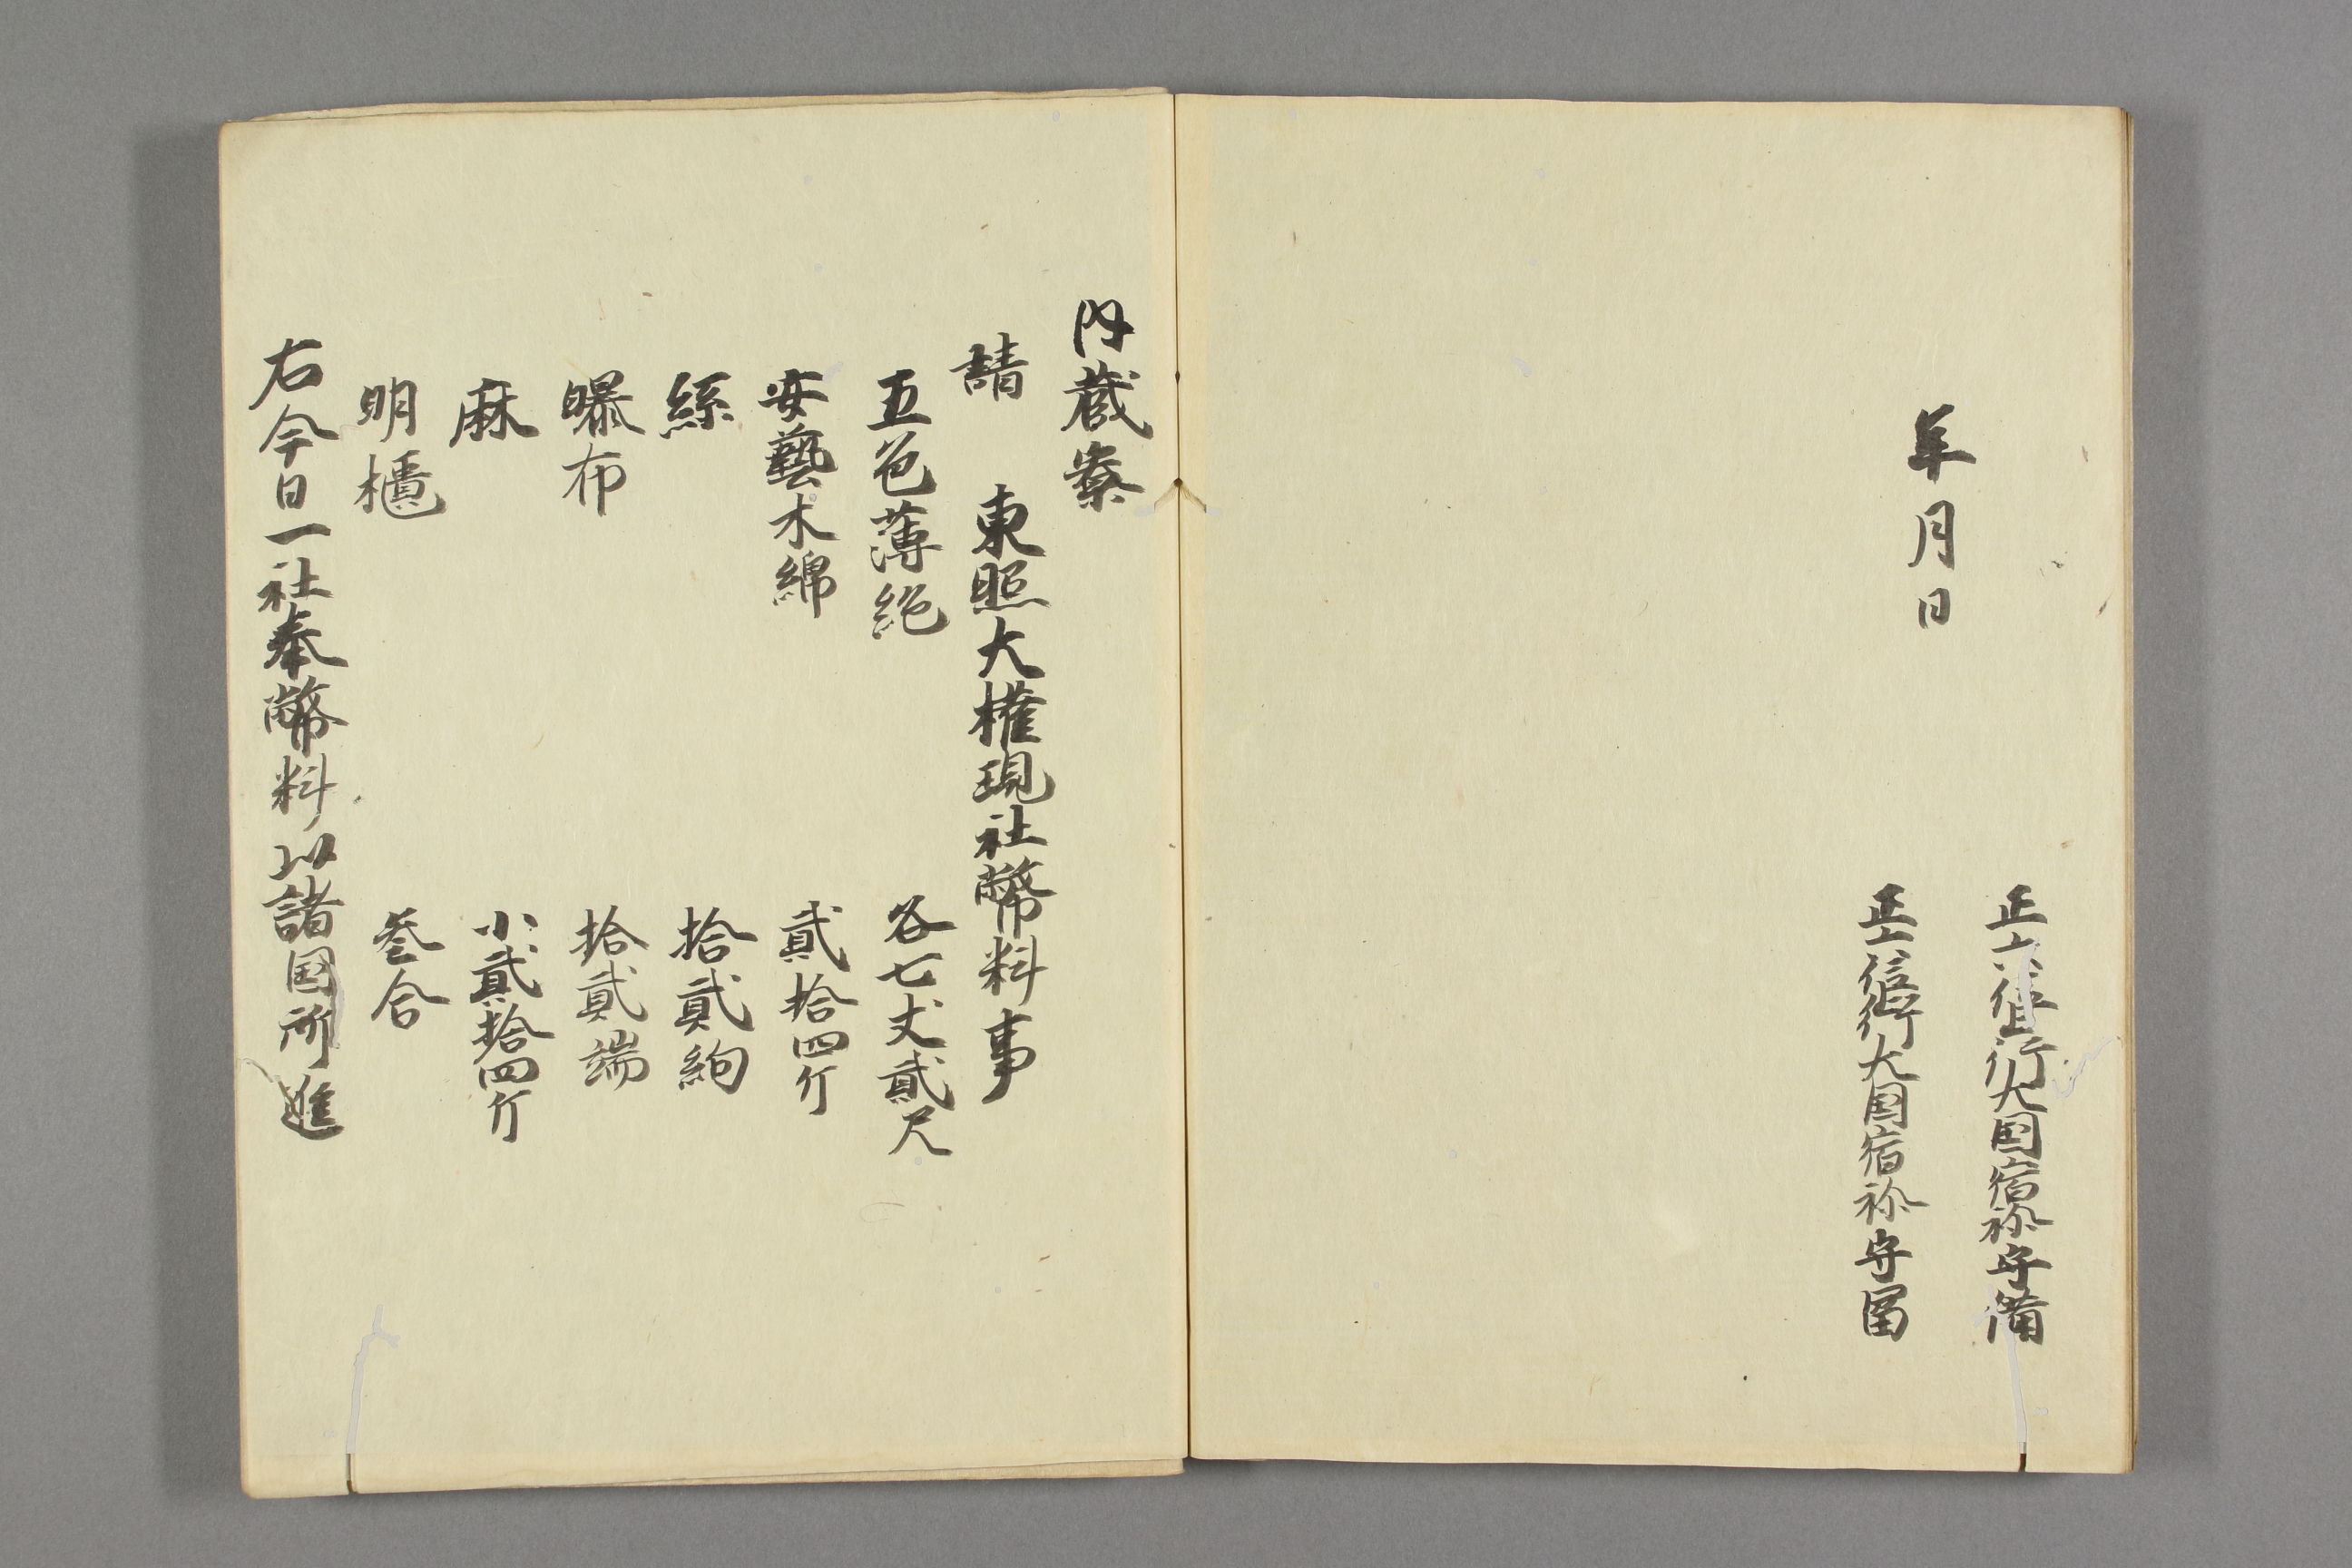 正六位行大国宿祢守備
年月日
正六位行大国宿祢守富
内蔵寮
請　東照大権現社幣料事
五色薄絁　各七丈貳尺
安藝木綿　貳拾四斤
絲　拾貳絇
曝布　拾貳端
麻　小貳拾四斤
明櫃　叄合
右今日一社奉幣料以諸国所進